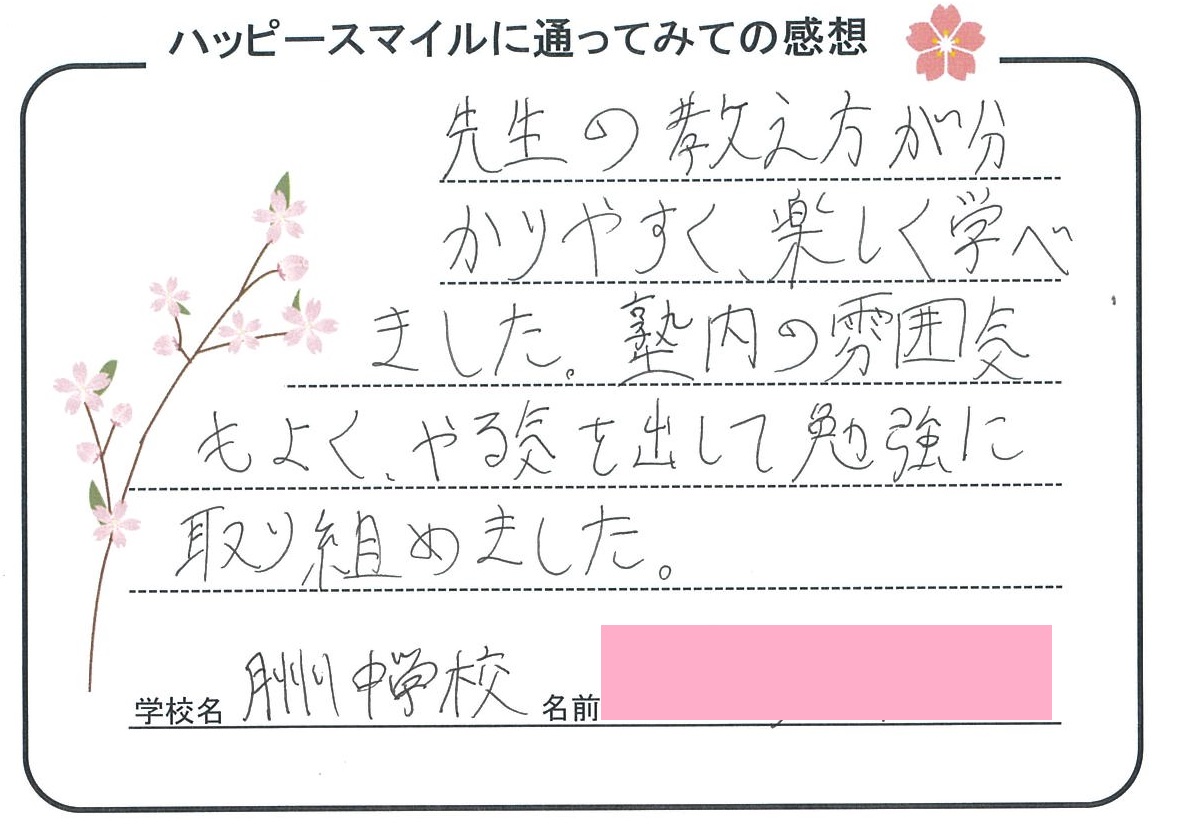 ハッピースマイルに通ってみての感想
先生の教え方が分
かりやすく、楽しく学べ
ました。塾内の雰囲気
もよく、やる気を出して勉強に
取り組めました。
学校名 中学校 名前